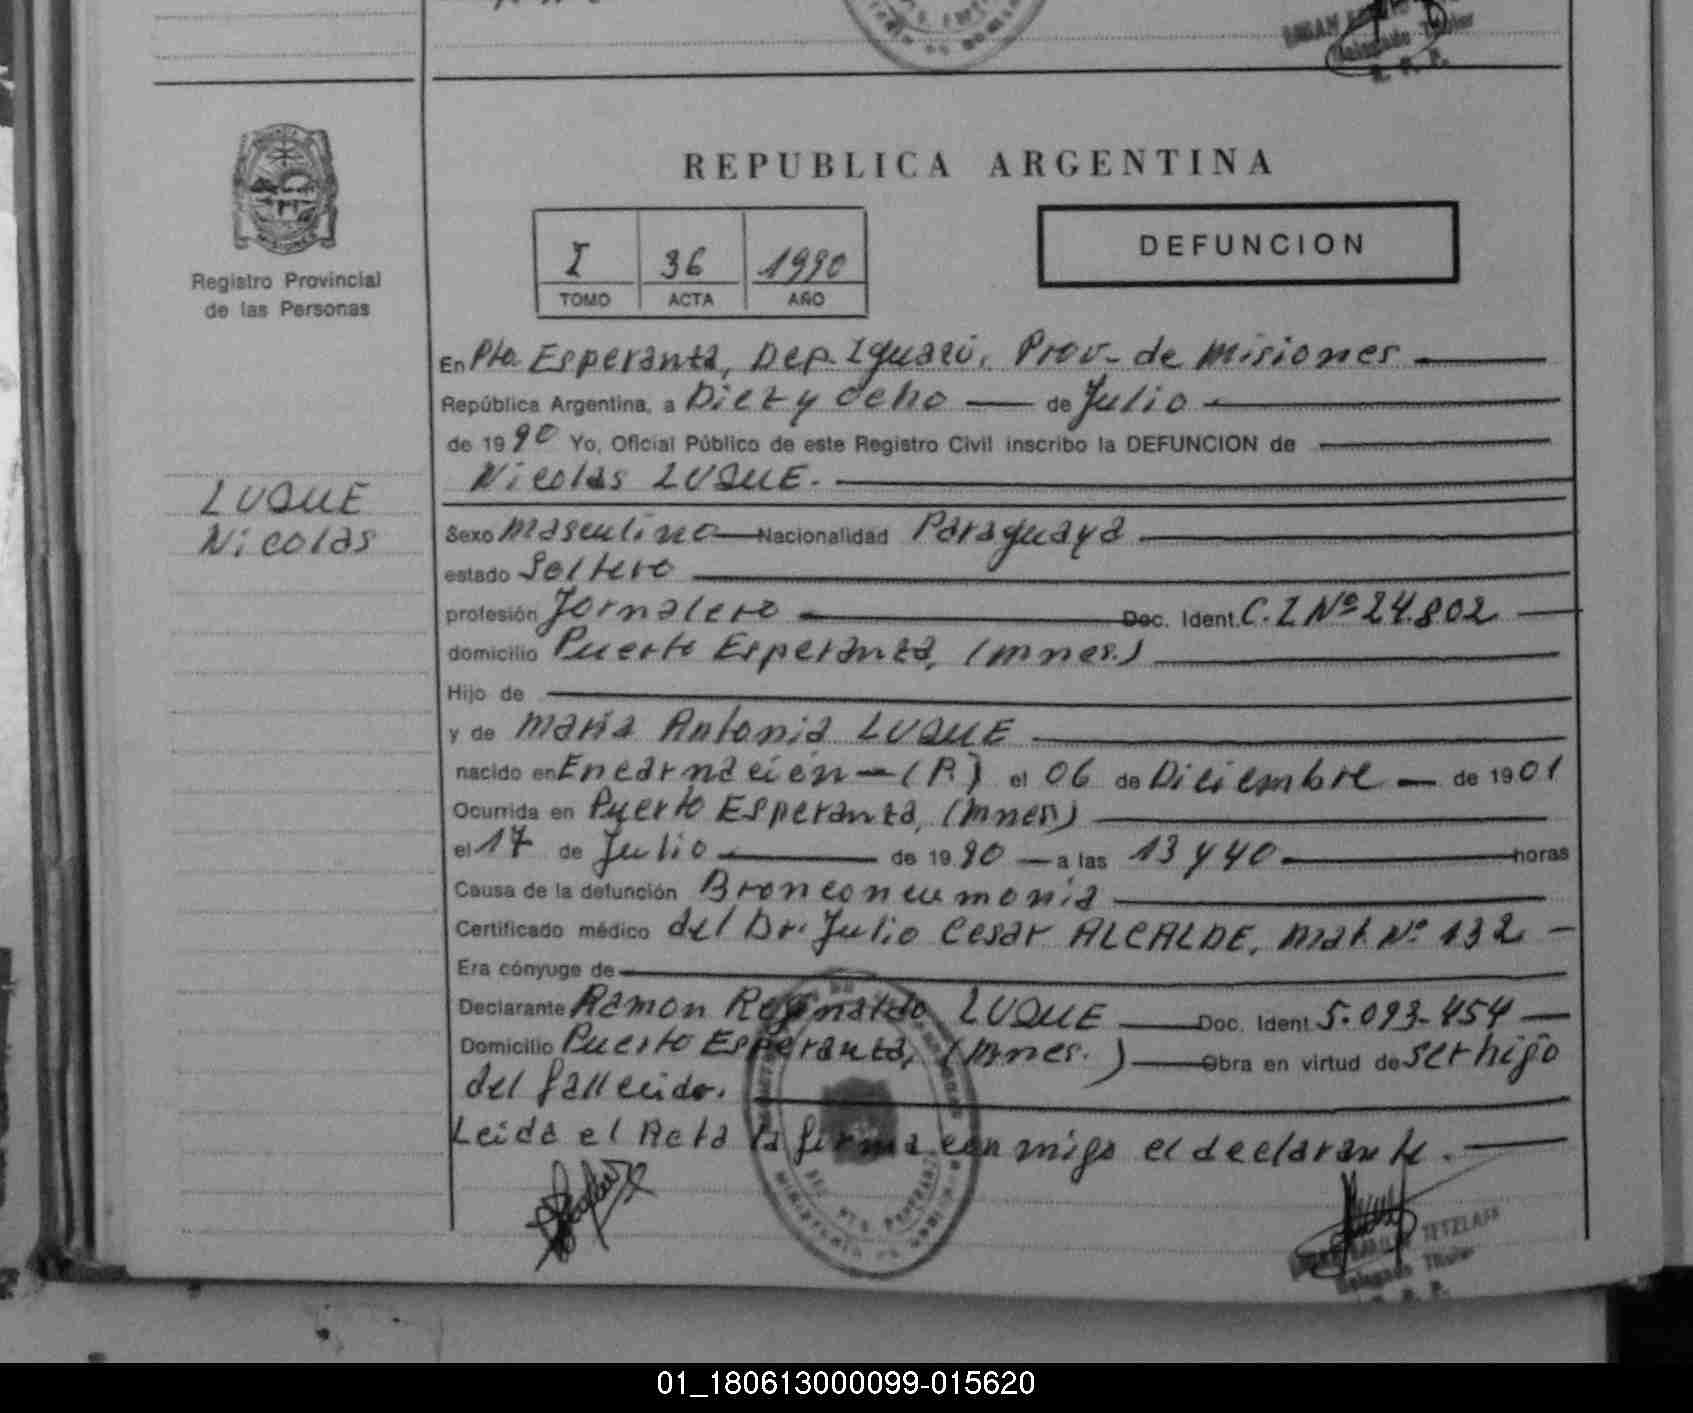 REPUBLICA ARGENTINA
DEFUNCION
I 36 1990
TOMO ACTA AÑO
Registro Provincial
de las Personas
LUQUE
Nicolas
En Pto. Esperanza, Dep. Iguazú, Prov. de Misiones
República Argentina, a Diez y ocho de Julio
de 1990 Yo, Oficial Público de este Registro Civil inscribo la DEFUNCION de
Nicolas LUQUE.
Sexo Masculino Nacionalidad Paraguaya
estado Soltero
profesión Jornalero Doc. Ident. C.I Nº 24.802
domicilio Puerto Esperanza, (Mnes.)
Hijo de
y de María Antonia LUQUE
nacido en Encarnación (P.) el 06 de Diciembre de 1901
Ocurrida en Puerto Esperanza, (Mnes)
el 17 de Julio de 1990 a las 13 y 40 horas
Causa de la defunción Bronconeumonia
Certificado médico del Dr. Julio Cesar ALCALDE, Mat. Nº 132
Era cónyuge de
Declarante Ramon Reginaldo LUQUE Doc. Ident. 5.093.454
Domicilio Puerto Esperanza, (Mnes.) Obra en virtud de ser hijo
del fallecido.
Leida el Acta la firma conmigo el declarante.
TETZLAFF
Delegado Titular
R. P. P.
01_180613000099-015620